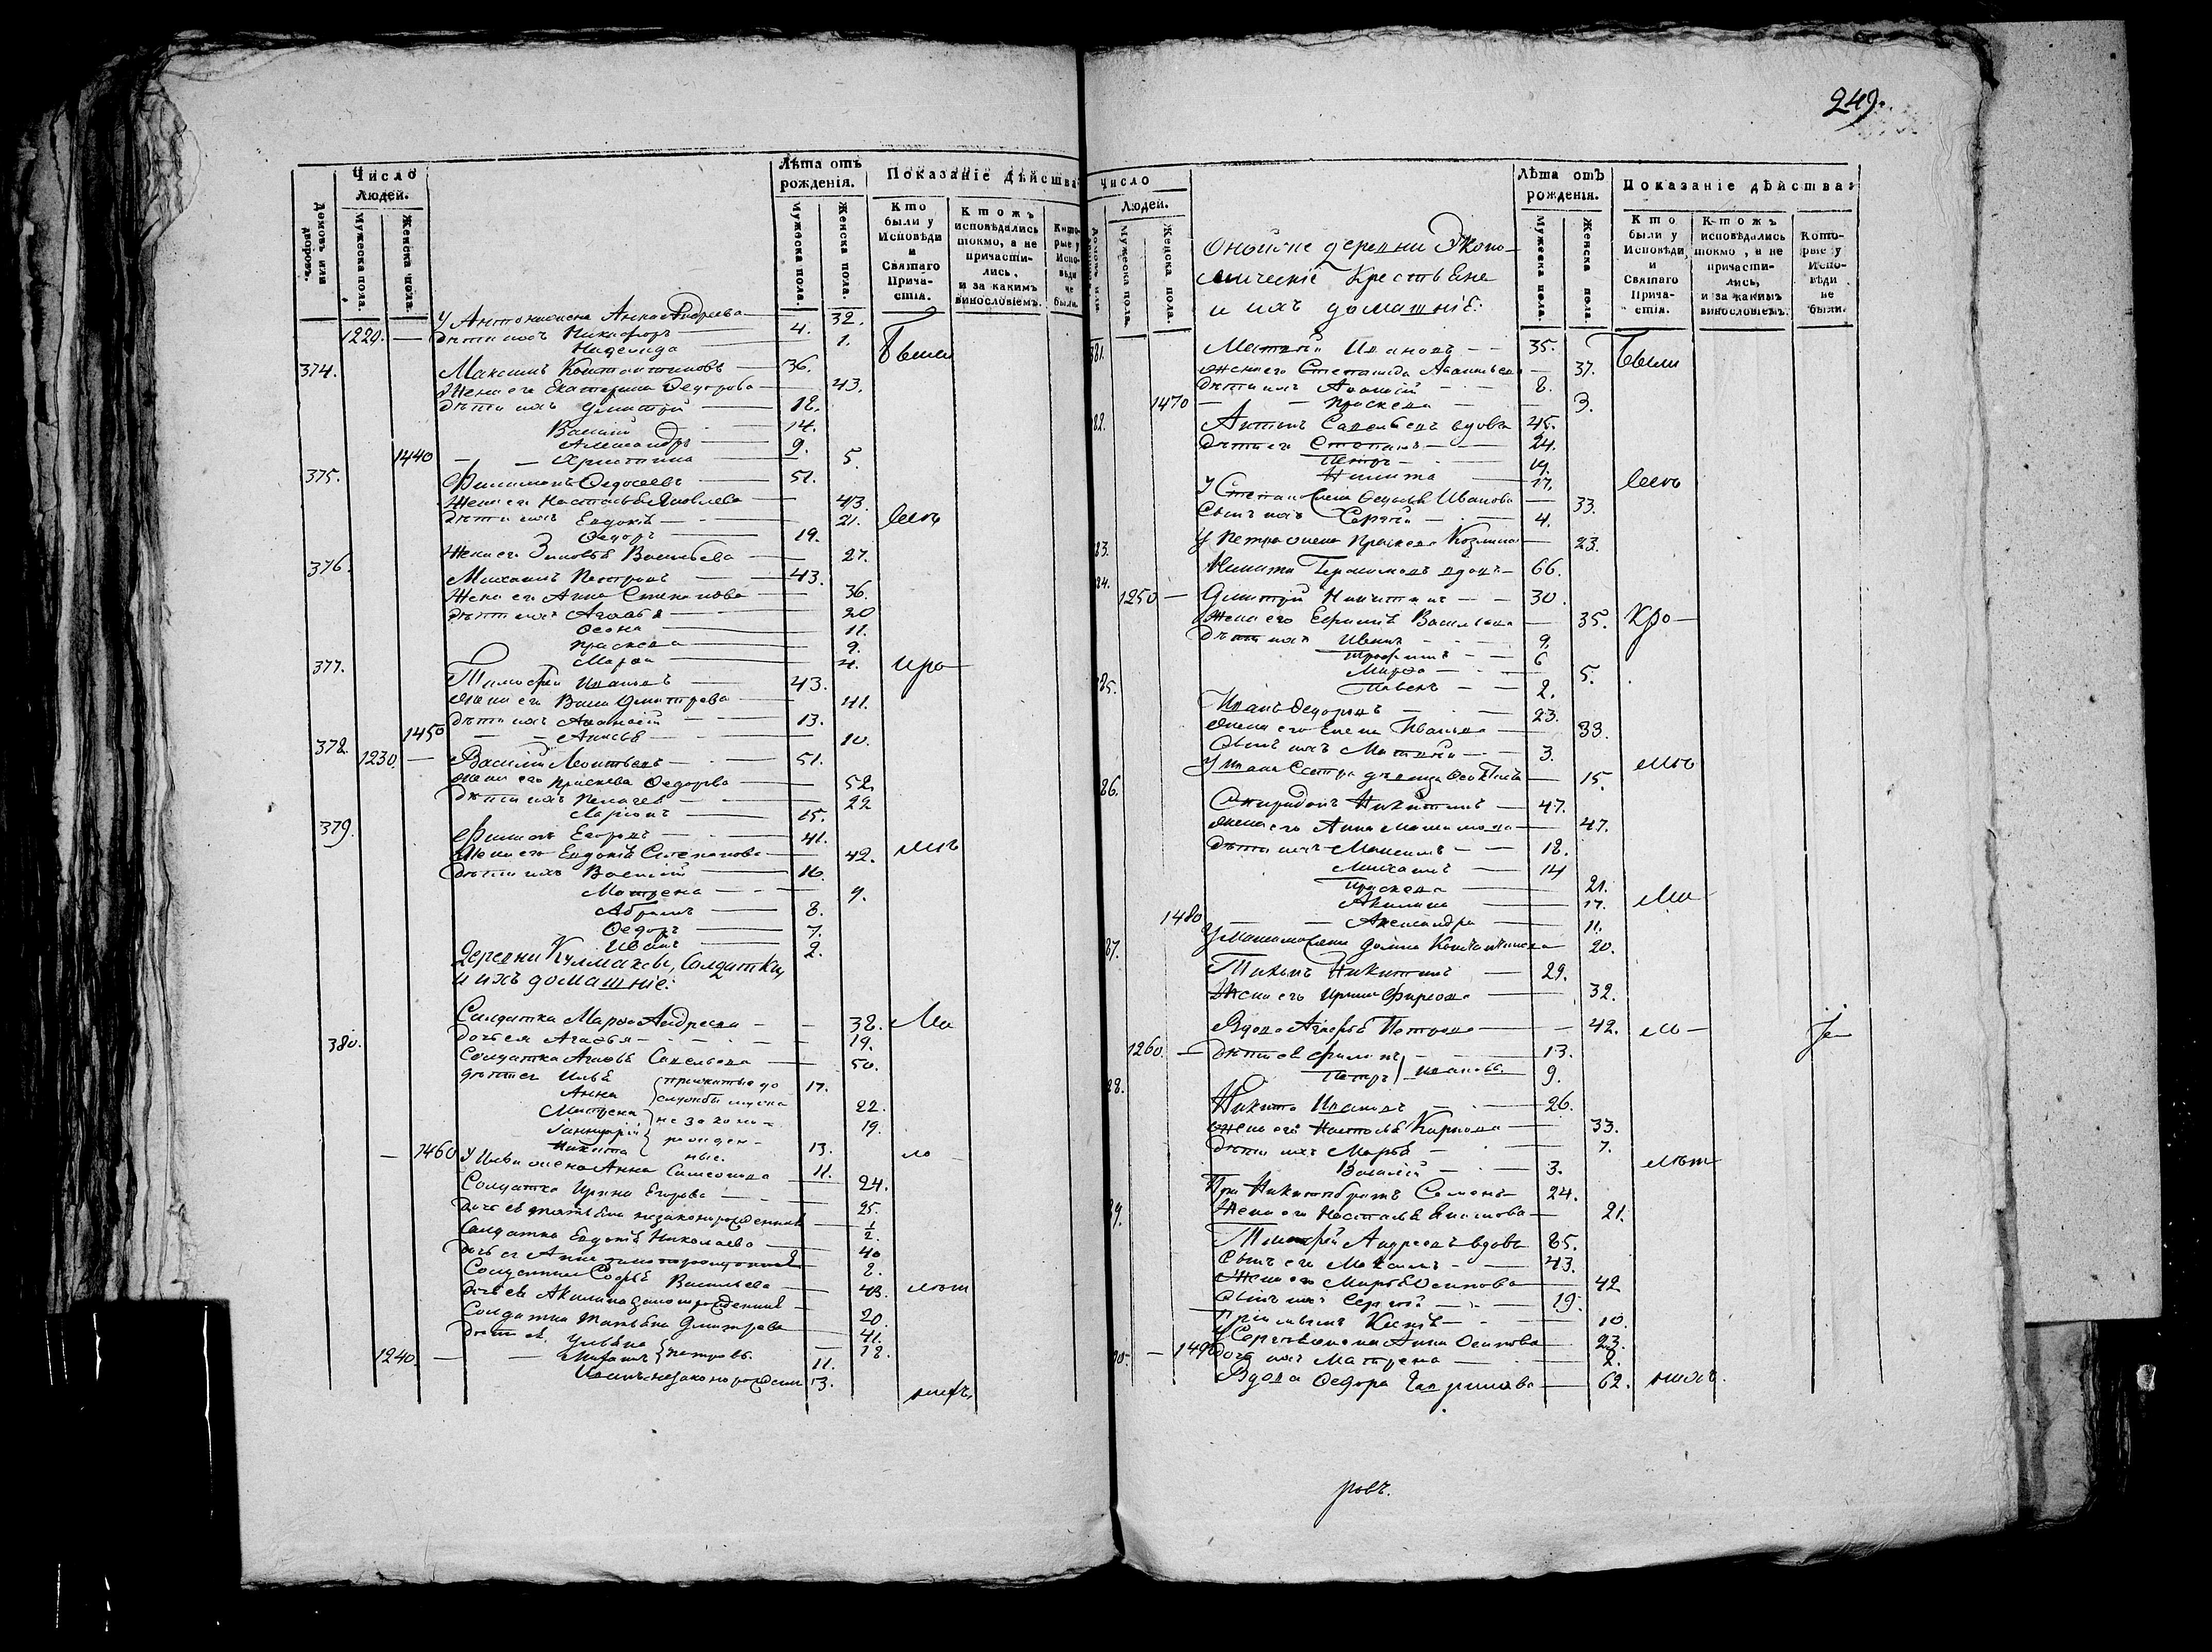 Домовъ или дворовъ.
Число Людей.
Мужеска пола.
Женска пола.
Лѣта отъ рожденія.
Мужеска пола.
Женска пола.
Показаніе дѣйства
Кто были у Исповѣди и Святаго Причастія.
Ктожъ исповѣдались токмо, а не причастились, и за какимъ винословіемъ.
Которые у Исповѣди не были.
У Антона жена Анна Андреева 32.
1229. — дѣти ихъ Никифоръ 4.
Надежда 1. Были
374. Максимъ Константиновъ 36.
Жена его Екатерина Федорова 43.
дѣти ихъ Дмитрій 18.
Василій 14.
Александръ 9.
1440 — Христина 5.
375. Филимонъ Федосеевъ 51.
Жена его Настасья Яковлева 43.
дѣти ихъ Евдокія 21.
Федоръ 19.
Жена его Зиновья Васильева 27.
376. Михаилъ Петровъ 43.
Жена его Анна Степанова 36.
дѣти ихъ Агафья 20
11.
Прасковья 9.
Марфа 4.
377. Тимофей Ивановъ 43.
жена его Дмитрева 41.
дѣти ихъ Афанасій 13.
1450 — Анисья 10.
378. 1230. — Василій Леонтьевъ 51.
жена его Прасковья Федорова 52.
дѣти ихъ Пелагея 22
Ларіонъ 15.
379. Филиппъ Егоровъ 41.
Жена его Евдокія Степанова 42.
дѣти ихъ Василій 16.
Матрена 9.
Абрамъ 8.
Федоръ 7.
Иванъ 2.
Деревни Кулмаковы, Солдатки,
и ихъ домашніе:
Солдатка Марфа Андреева 38.
дочь ея Агафья 19.
380. Солдатка Агафья Савельева 50.
дѣти ея Илья 17.
Анна 22.
Матрена 19.
Іаннуарій 13.
1460 Никита 11.
У Ильи жена Анна Симеонова 24.
Солдатка Ирина Егорова 25.
дочь ея Татьяна незаконорожденная ½
Солдатка Евдокія Николаева 40
дочь ея Анна 2.
Солдатка Софья Васильева 43.
дочь ея Акилина законорожденная 20.
Солдатка Татьяна Дмитрева 41.
дѣти ея Ульяна 18.
1240. — Михаилъ Петровы. 11.
Иванъ незаконорожден 3.
249.
Число Людей.
Мужеска пола.
Женска пола.
Лѣта отъ рожденія.
Мужеска пола.
Женска пола.
Показаніе дѣйства
Кто были у Исповѣди и Святаго Причастія.
Ктожъ исповѣдались токмо, а не причастились, и за какимъ винословіемъ.
Которые у Исповѣди не были.
Оной же деревни Эконо-
мическіе Крестьяне
и ихъ домашніе:
381. Матвей Ивановъ 35. Были
жена его Степанида Афанасьева 37.
дѣти ихъ Афанасій 8.
1470 — Прасковья 3.
82. Антипъ Савельевъ вдовъ 45.
дѣти его Степанъ 24.
Петръ 19.
Никита 17.
У Степана жена Федосья Иванова 33.
Сынъ ихъ Сергѣй 4.
У Петра жена Прасковья Козмина 23.
83. Никита Герасимовъ вдовъ 66.
84. 1250 — Дмитрій Никитинъ 30.
Жена его Ефимія Васильева 35.
дѣти ихъ Иванъ 9.
Трофимъ 6
Марфа 5.
Павелъ 2.
85. Иванъ Федоровъ 23.
жена его Елена Иванова 33.
Сынъ ихъ Матвей 3.
У Ивана Сестра дѣвица 15.
86. Спиридонъ Никитинъ 47.
жена его Анна 47.
дѣти ихъ Максимъ 18.
Михаилъ 14
Прасковья 21.
Акилина 17.
1480 — Александра 11.
У Максима жена Домна Константинова 20.
87. Тихонъ Никитинъ 29.
Жена его Ирина Фирсова 32.
Вдова Агафья Петрова 42.
1260. — дѣти ея Филипъ 13.
Петръ Ивановы 9.
88. Никита Ивановъ 26.
жена его Настасья Карпова 33.
дѣти ихъ Марья 7.
Василій 3.
При Никите братъ Семенъ 24.
89. Жена его Настасья 21.
Тимофей Андреевъ вдовъ 85.
Сынъ его Максимъ 43.
Жена его Марья Осипова 42
Сынъ ихъ Сергѣй 19.
10.
У Сергѣя жена Анна Осипова 23.
90. — 1490 дочь ихъ Матрена 2.
Вдова Федора Гаврилова 62.
ровъ.